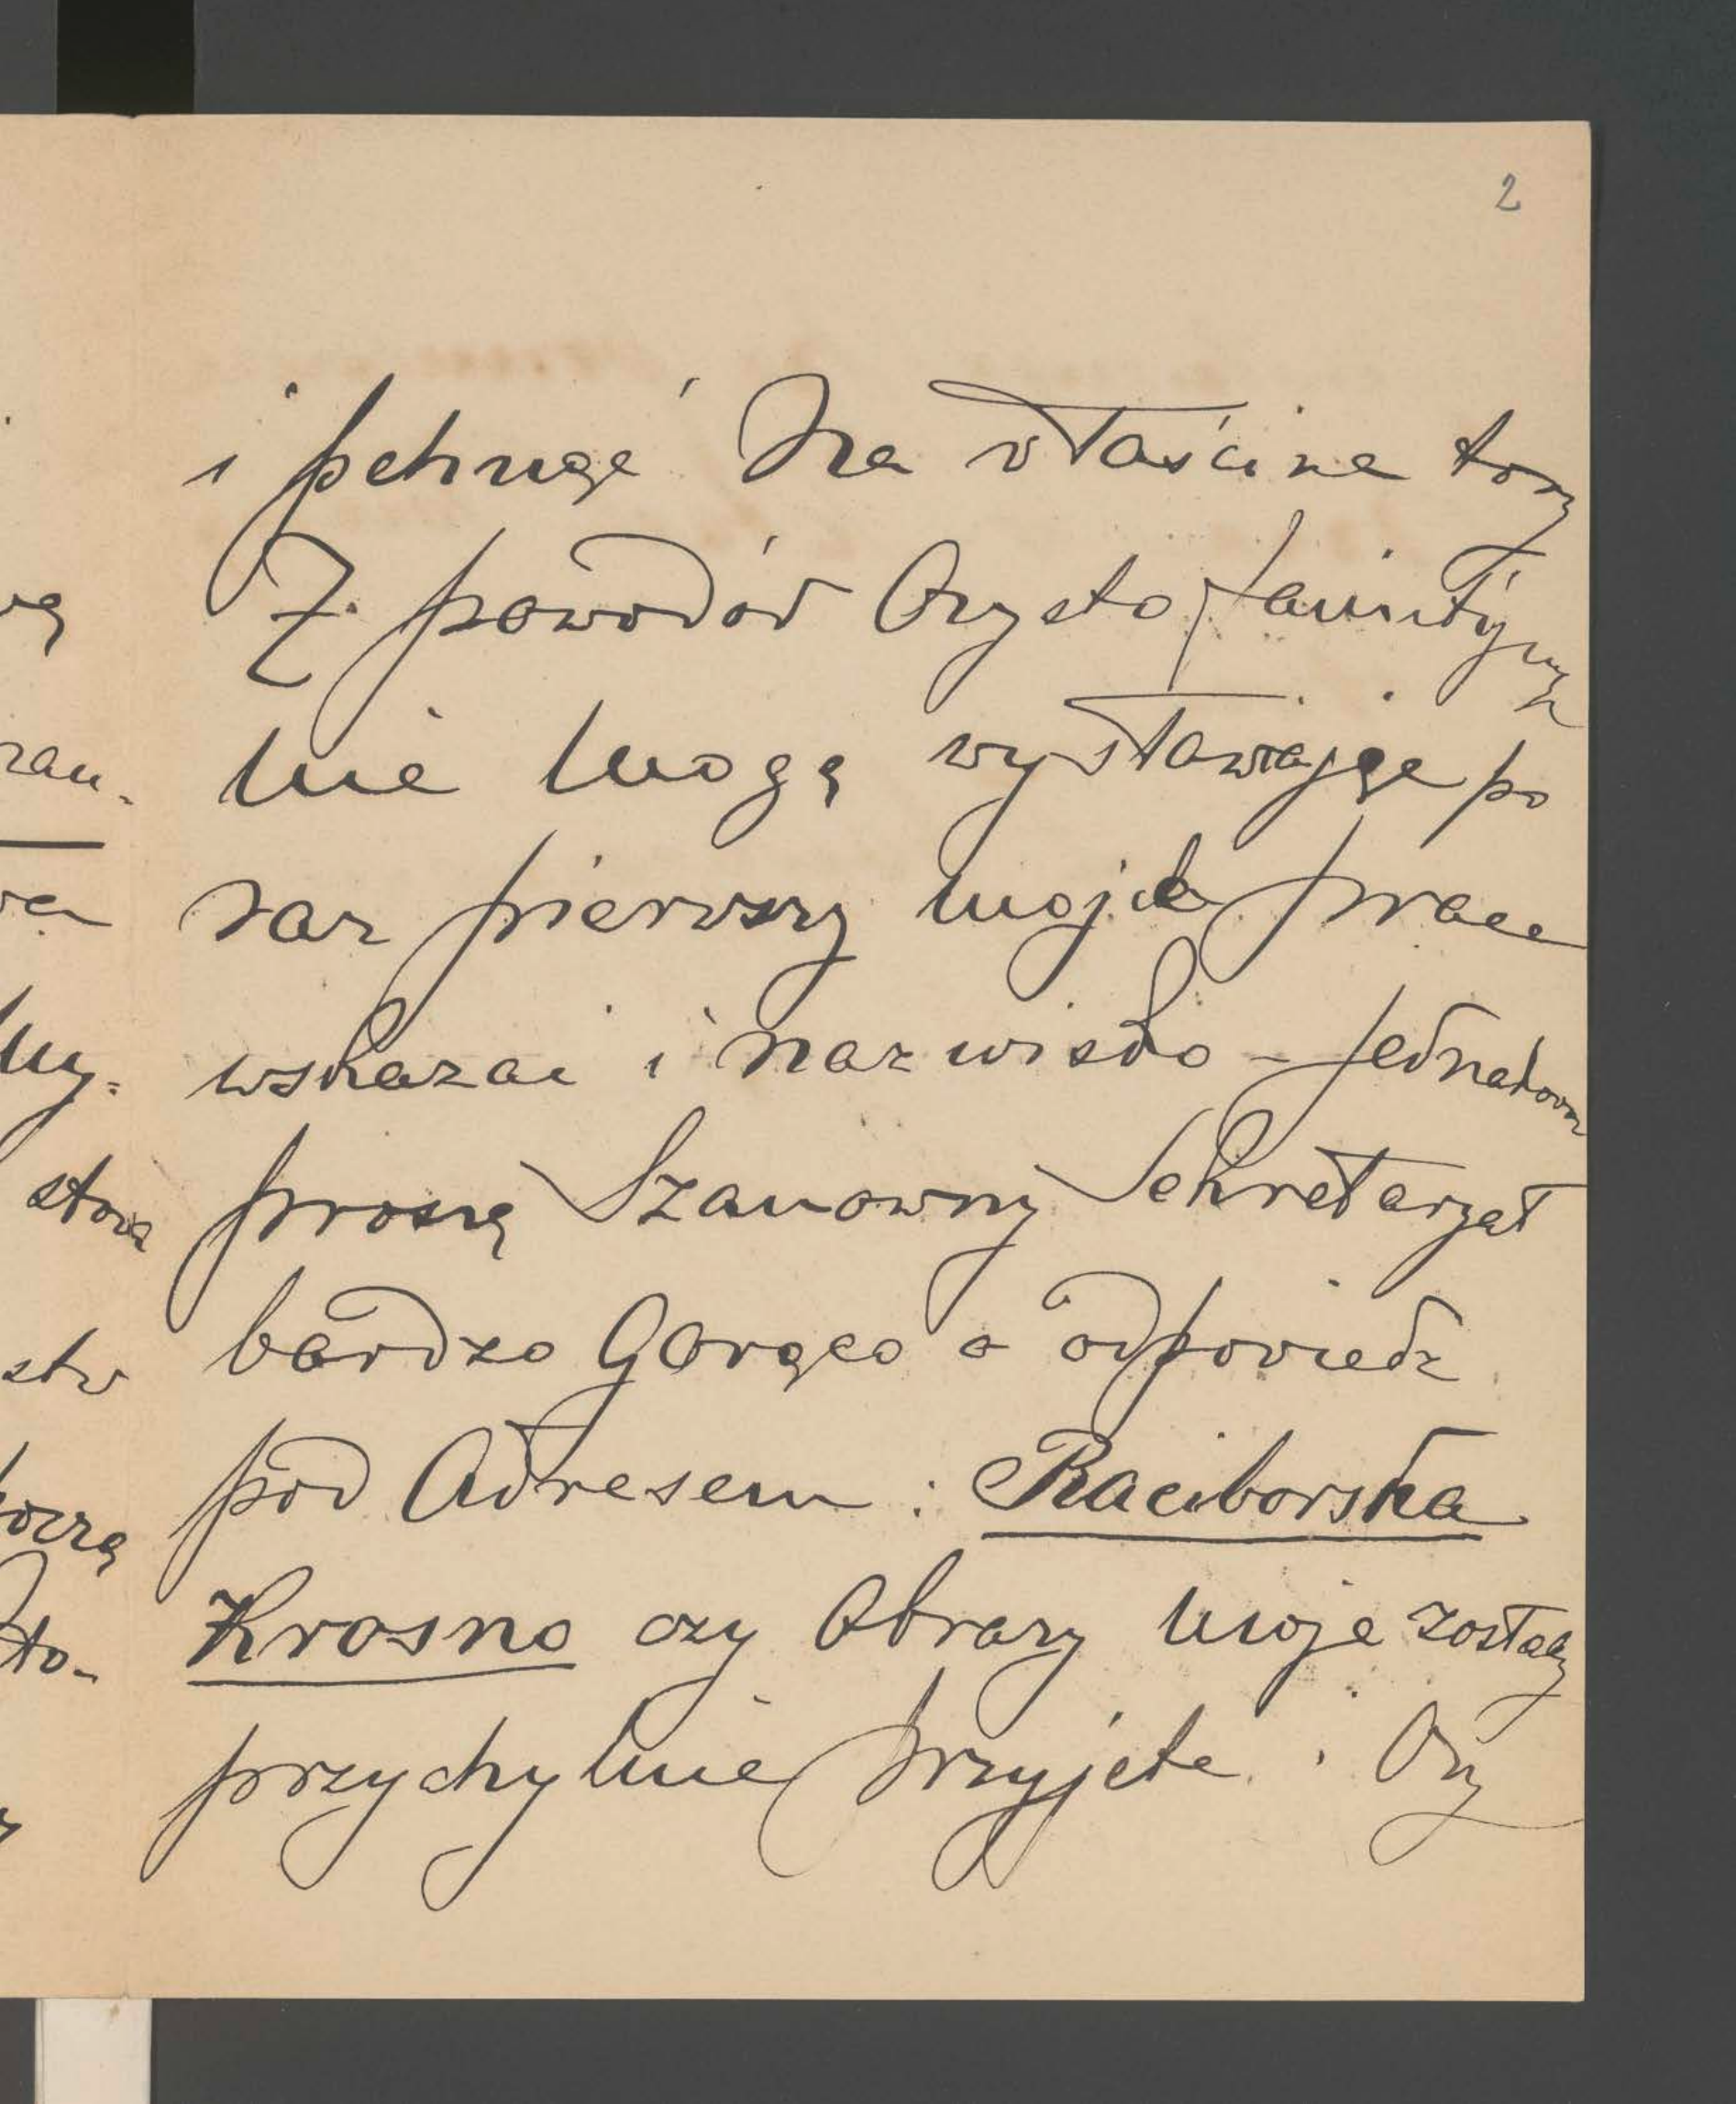 2
i pchnąć Na właściwe tory
Z powodów Czysto familijnych
nie mogę wystawiając po
raz pierwszy moje prace
wskazać i nazwisko - Jednakowoż
proszę Szanowny Sekretarzat
bardzo Gorąco o odpowiedz
pod Adresem : Raciborska
Krosno czy Obrazy moje zostały
przychylnie przyjęte . Czy